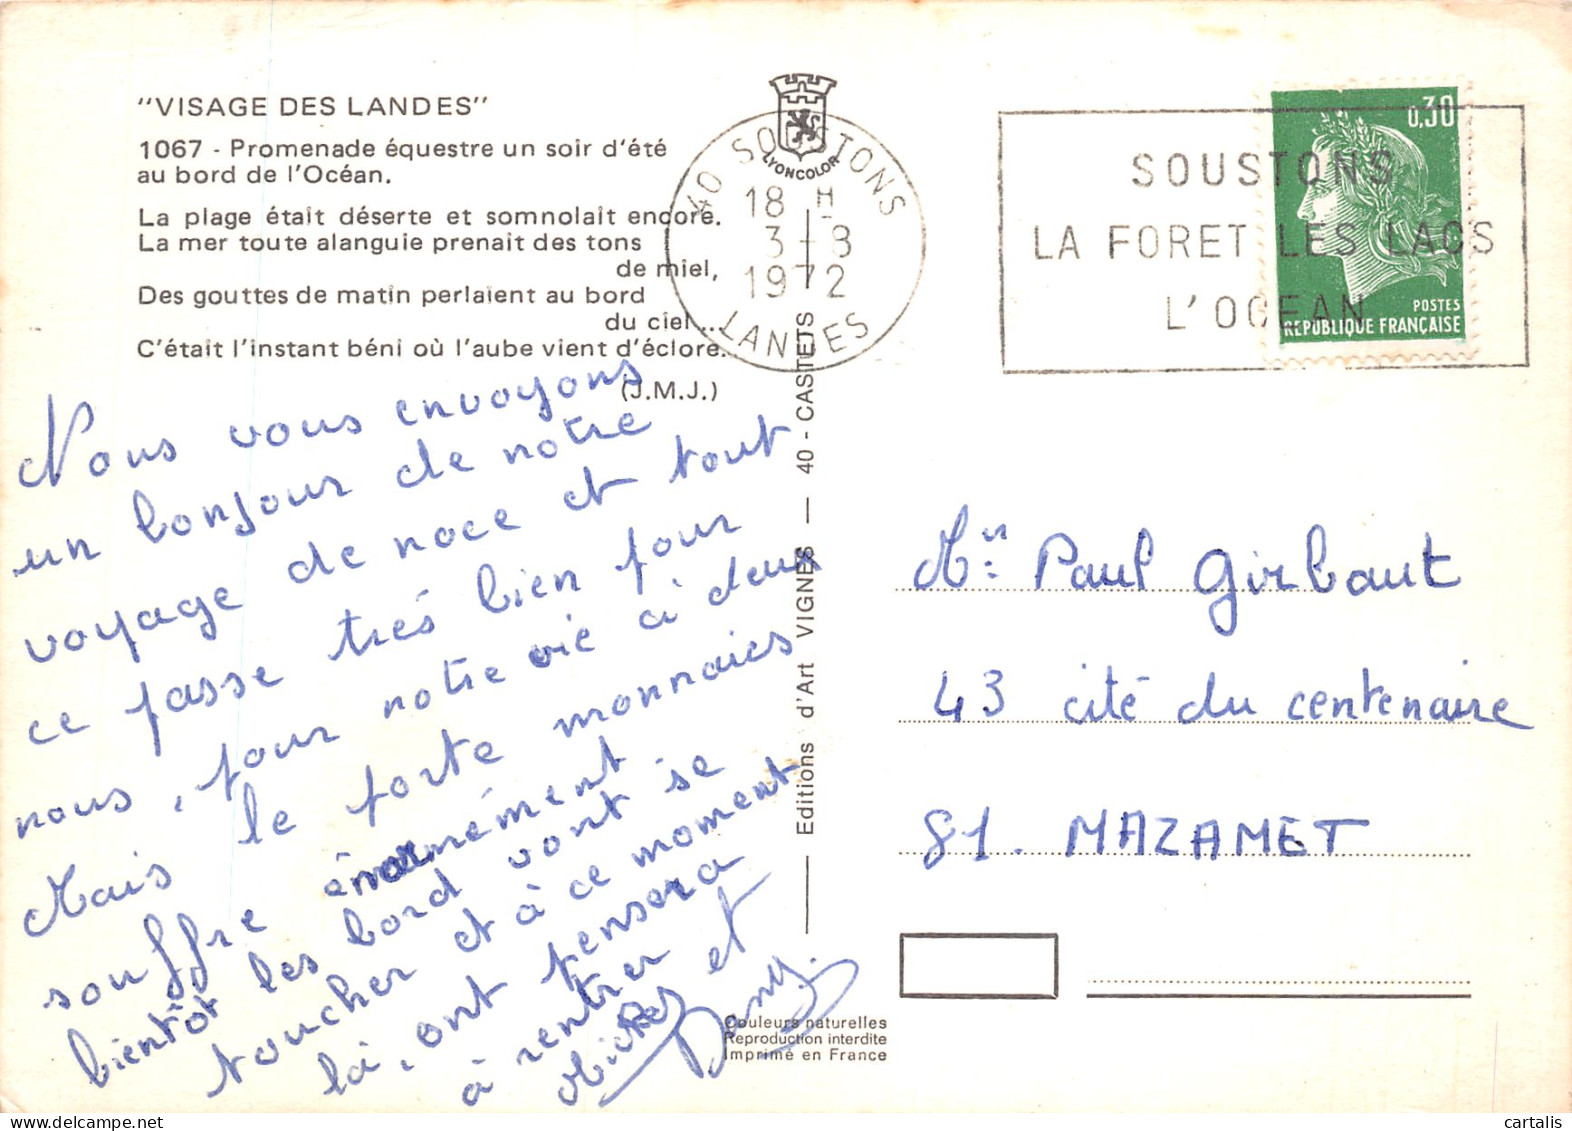 "VISAGE DES LANDES"
1067 - Promenade équestre un soir d'été
au bord de l'Océan.
La plage était déserte et somnolait encore.
La mer toute alanguie prenait des tons
de miel,
Des gouttes de matin perlaient au bord
du ciel...
C'était l'instant béni où l'aube vient d'éclore.
(J.M.J.)
Nous vous envoyons
un bonjour de notre
voyage de noce et tout
ce passe très bien pour
nous, pour notre vie à deux
Mais le porte monnaies
souffre énormément
bientôt les bord vont se
toucher et à ce moment
là, ont pensera
à rentrer et
Dany.
LYONCOLOR
40 SOUSTONS
18 H
3-8
1972
LANDES
SOUSTONS
LA FORET LES LACS
L'OCEAN
0,30
POSTES
REPUBLIQUE FRANÇAISE
Editions d'Art VIGNES — 40 - CASTETS
Mr: Paul Girbaut
43 cité du centenaire
81. MAZAMET
Couleurs naturelles
Reproduction interdite
Imprimé en France
cartalis